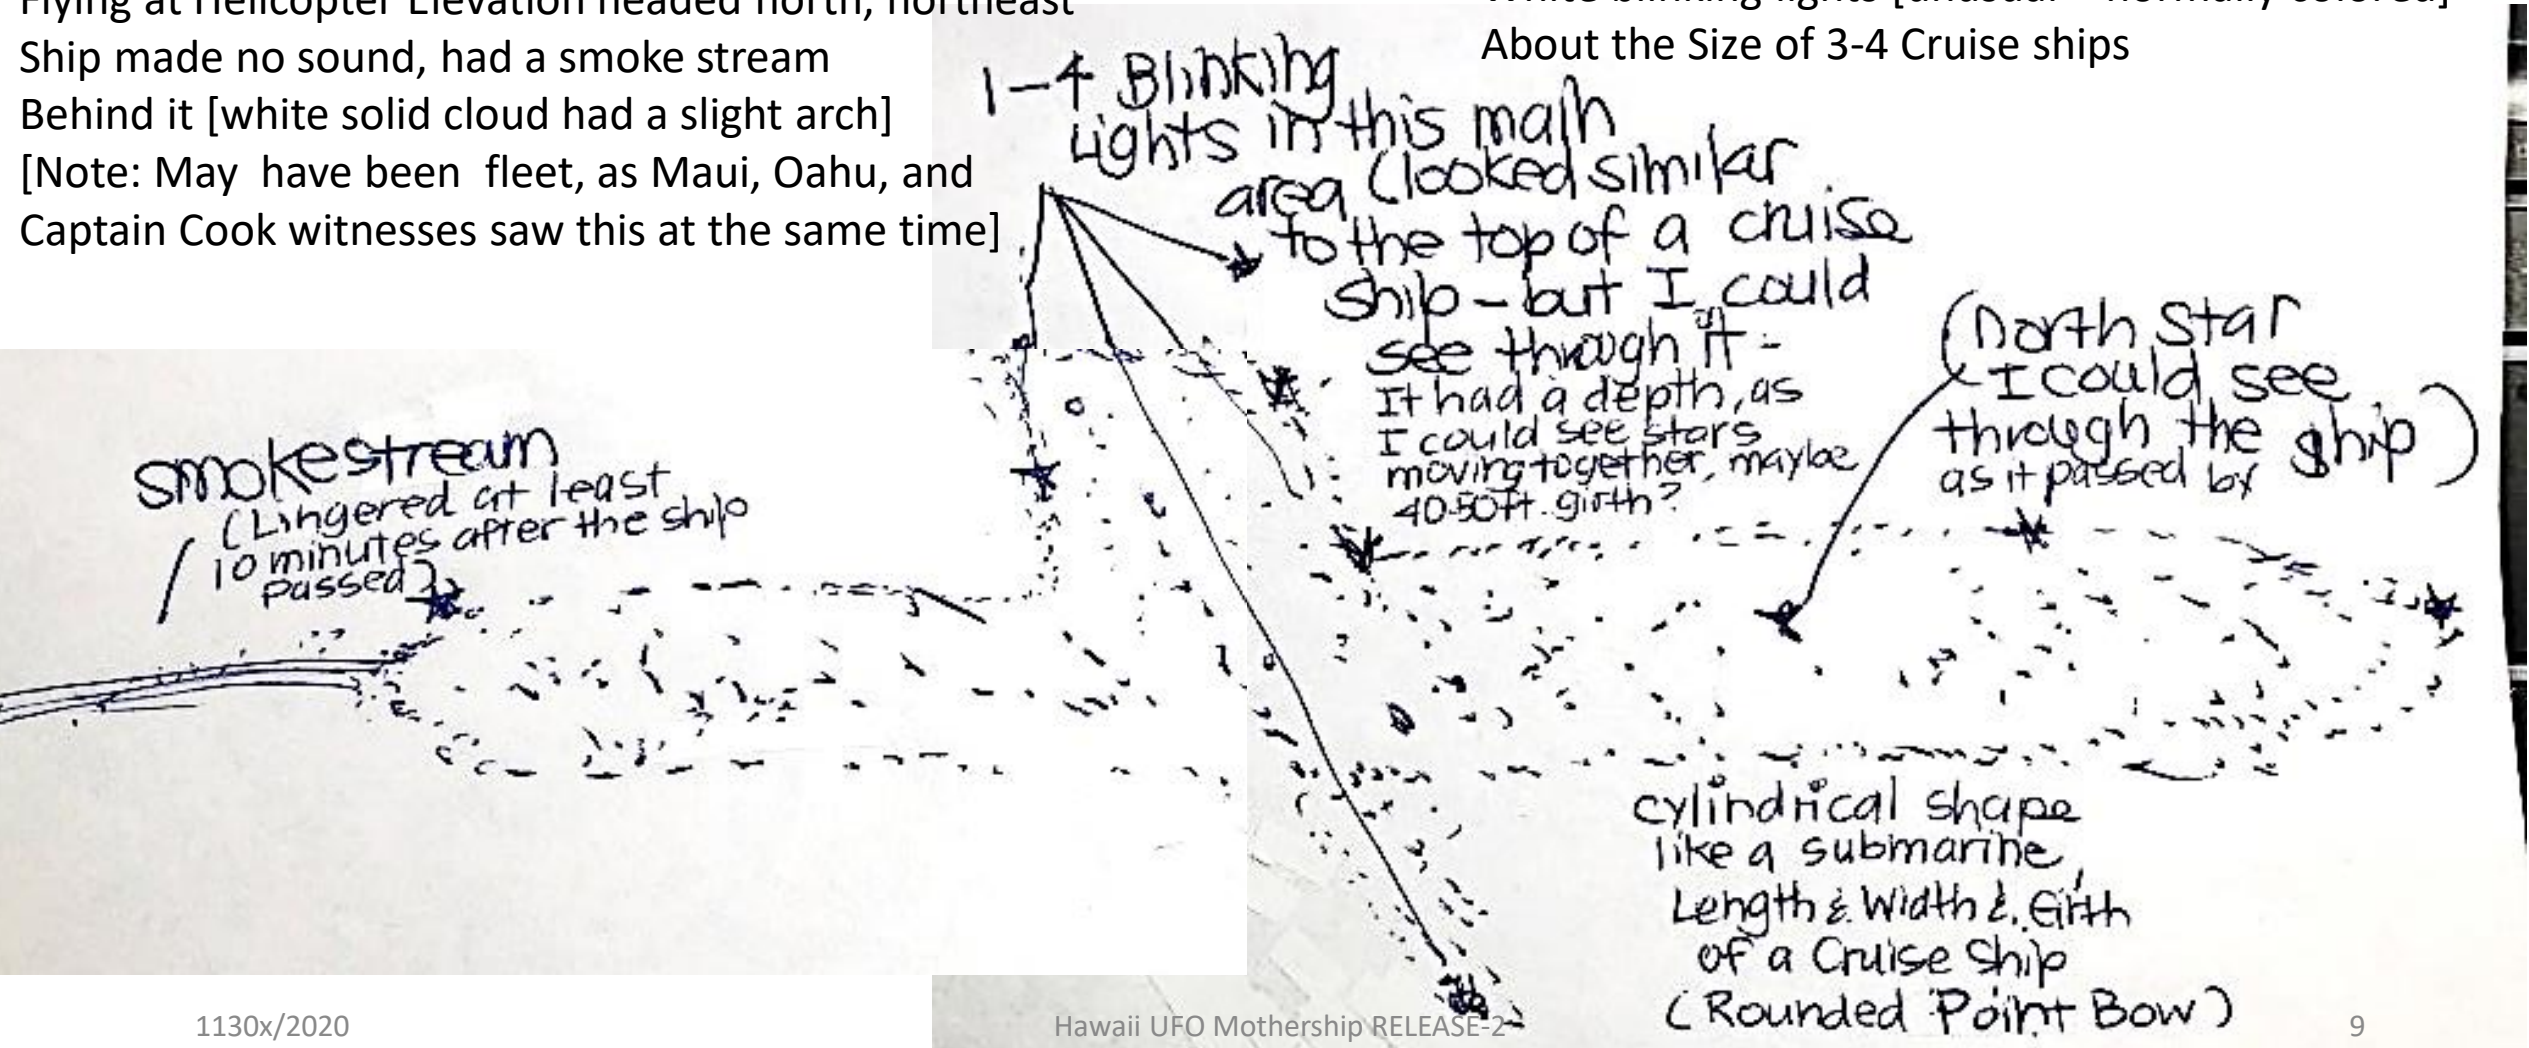 Flying at Helicopter Elevation headed north, northeast
Ship made no sound, had a smoke stream
Behind it [white solid cloud had a slight arch]
[Note: May have been fleet, as Maui, Oahu, and
Captain Cook witnesses saw this at the same time]
White blinking lights [unusual – normally colored]
About the Size of 3-4 Cruise ships
1-4 Blinking
Lights in this main
area (looked similar
to the top of a cruise
ship - but I could
see through it -
It had a depth, as
I could see stars
moving together, maybe
40-50ft. girth?
(North Star
I could see
through the ship)
as it passed by
smokestream
(Lingered at least
10 minutes after the ship
passed)
cylindrical shape
like a submarine,
Length & Width & Girth
of a Cruise Ship
(Rounded Point Bow)
1130x/2020
Hawaii UFO Mothership RELEASE-2
9